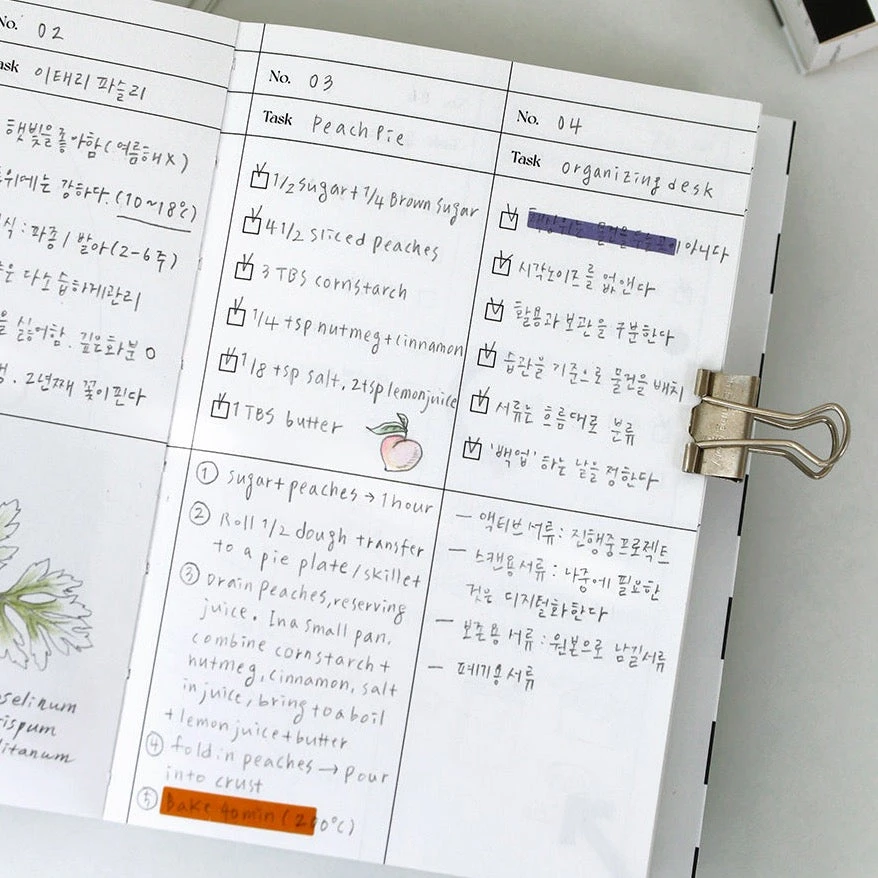 No. 02
Task 이태리 파슬리
햇빛을좋아함(여름해X)
위에는 강하다.(10~18℃)
식: 파종 / 발아(2-6주)
은 다소 습하게관리
을 싫어함. 깊은화분 O
2년째 꽃이핀다
selinum
rispum
litanum
No. 03
Task Peach Pie
1/2 sugar + 1/4 Brown sugar
4 1/2 sliced peaches
3 TBS cornstarch
1/4 tsp nutmeg + cinnamon
1/8 tsp salt, 2tsp lemon juice
1 TBS butter
① sugar + peaches → 1 hour
② Roll 1/2 dough transfer
to a pie plate/skillet
③ Drain peaches, reserving
juice. In a small pan,
combine cornstarch +
nutmeg, cinnamon, salt
in juice, bring to a boil
+ lemon juice + butter
④ fold in peaches → pour
into crust
⑤ Bake 40min (200℃)
No. 04
Task organizing desk
책상위는 물건을 두는곳이 아니다
시각노이즈를 없앤다
활용과 보관을 구분한다
습관을 기준으로 물건을 배치
서류는 흐름대로 분류
'백업' 하는 날을 정한다
- 액티브 서류: 진행중 프로젝트
- 스캔용 서류: 나중에 필요한
것은 디지털화한다
- 보존용 서류: 원본으로 남길서류
- 폐기용 서류